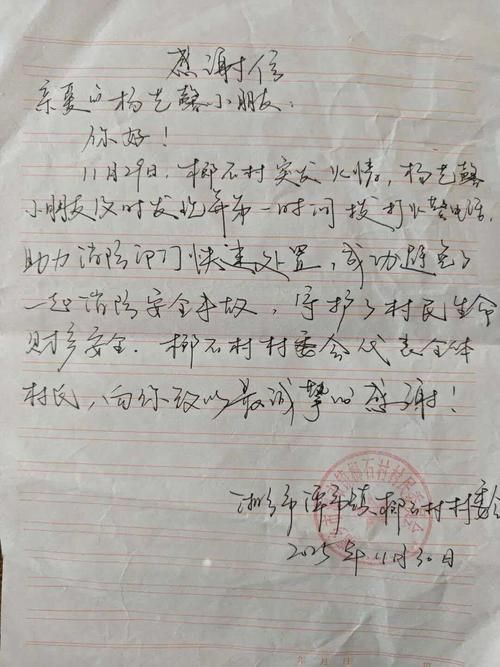 感谢信
亲爱的杨艺馨小朋友:
你好!
11月29日,椰石村突发火情。杨艺馨
小朋友及时发现并第一时间拨打火警电话,
助力消防部门快速处置,成功避免了
一起消防安全事故,守护了村民生命
财产安全.椰石村村委会代表全体
村民,向你致以最诚挚的感谢!
湘乡市潭市镇椰石村村委会
2025年11月30日
年 月 日